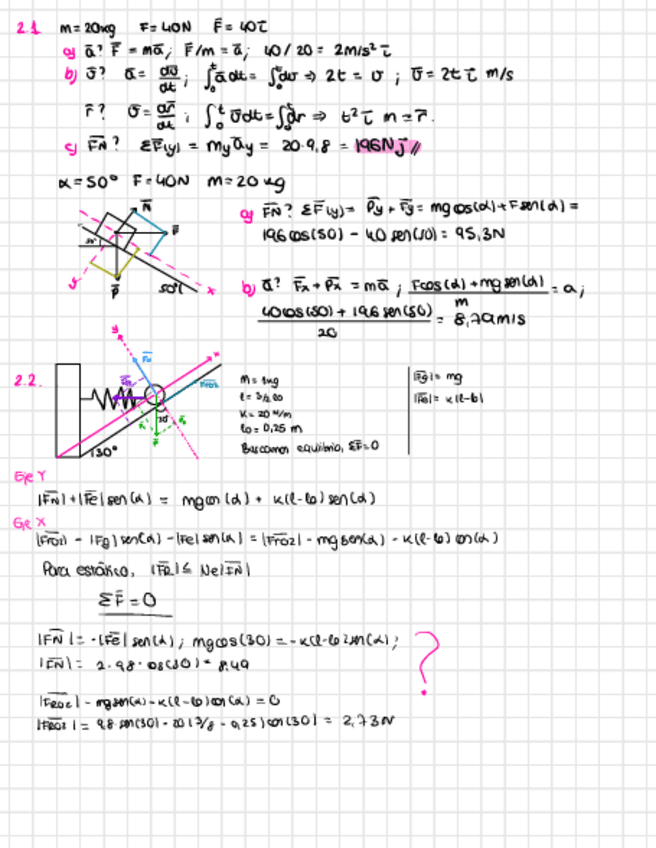 2.1 m=20kg F=40N F̄=40ī
a) ā? F̄=mā; F̄/m=ā; 40/20=2m/s² ī
b) v̄? ā=dv̄/dt; ∫₀ᵗ ā dt=∫₀ᵗ dv ⇒ 2t=v; v̄=2t ī m/s
r̄? v̄=dr̄/dt; ∫₀ᵗ v̄dt=∫dr ⇒ t² ī m=r̄.
c) F̄N? ΣF̄(y)=my āy=20·9,8=196N j //
α=50° F=40N m=20kg
N̄
F̄
50°
P̄
50°
y
x
a) F̄N? ΣF̄(y)=P̄y+F̄y=mg cos(α)+Fsen(α)=
196cos(50) - 40 sen(50)=95,3N
b) ā? F̄x+P̄x=mā; Fcos(α)+mgsen(α)/m=a;
40cos(50)+196sen(50)/20=8,79m/s
2.2.
y
x
F̄roz
30
130°
m=1kg
l=3/2 l0
K=20N/m
l0=0,25 m
Buscamos equilibrio, ΣF̄=0
|F̄g|=mg
|F̄e|=k(l-l0)
Eje Y
|F̄N|+|F̄e|sen(α)=mgcos(α)+k(l-l0)sen(α)
Eje X
|F̄roz| - |F̄g|sen(α) - |F̄e|sen(α)=|F̄roz| - mgsen(α) - k(l-l0)cos(α)
Para estático, |F̄R|≤Ne|F̄N|
ΣF̄=0
|F̄N|=-|F̄e|sen(α); mgcos(30)=-k(l-l0)sen(α);
|F̄N|= 9.8·cos(30)=8,49
?
|F̄roz| - mgsen(α)-k(l-l0)cos(α)=0
|F̄roz|=9.8 sen(30)-20(3/8-0,25)cos(30)=2,73N